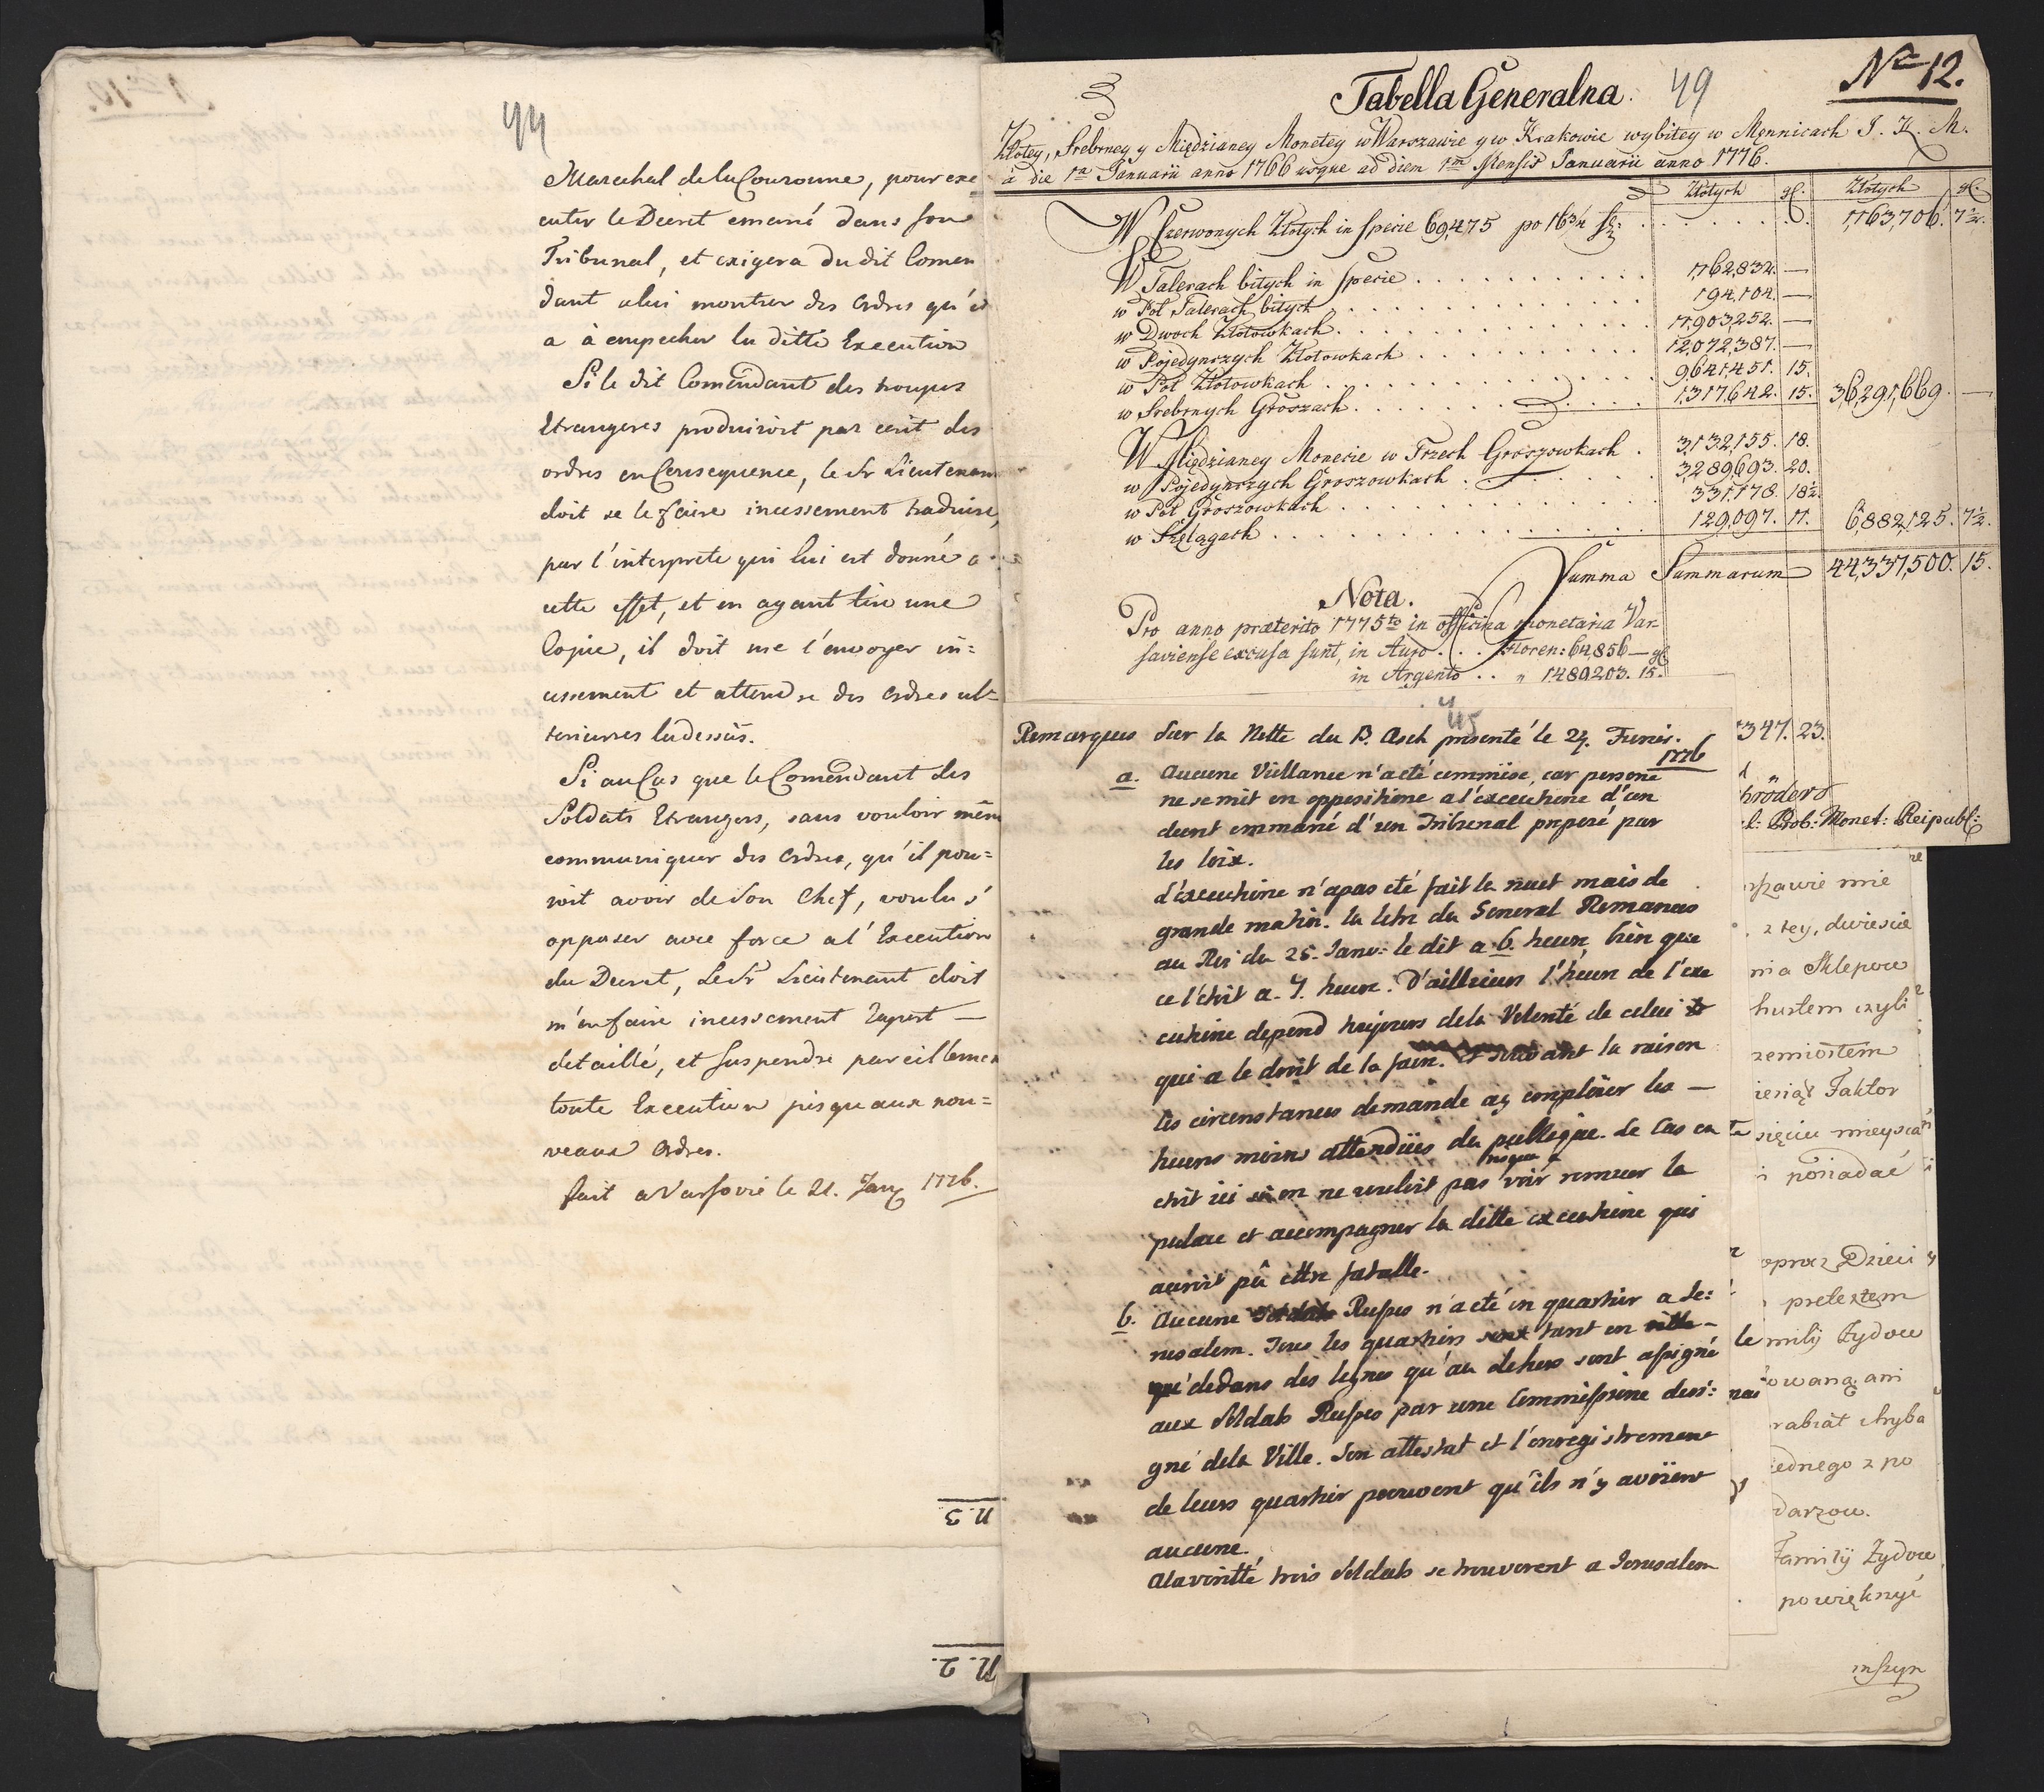 44
Marechal de la Couronne, pour exe
cuter le Decret emané dans son
Tribunal, et exigera du dit Comen
dant a lui montrer des Ordres qu'il
a à empecher la ditte Execution
Si le dit Comendant des troupes
Etrangeres produiroit par ecrit des
ordres en Consequence, le Sr Lieutenan
doit se le faire incessement traduire,
par l'interprete qui lui est donné a
cette effet, et en ayant tiré une
Copie, il doit me l'envoyer in=
cessement et attendre des Ordres ul=
terieures la dessus.
Si au Cas que le Comendant des
Soldats Etrangers, sans vouloir mêm
communiquer des Ordres, qu'il pou=
roit avoir de son Chef, voulu s'
opposer avec force a l'Execution
du Decret, Le Sr Lieutenant doit
m'en faire incessement Raport —
detaillé, et suspendre pareilleme
toute Execution jusqu aux nou=
veaux Ordres.
fait a Varsovie le 21. Janv 1776.
n. 3
N. 2.
Nro 12.
Tabella Generalna. 49
Złotey, Srebrney y Miedzianey Monetey w Warszawie y w Krakowie wybitey w Mennicach J. K. M.
à die 1ma Januarii anno 1766 usque ad diem 1ma Mensis Januarii anno 1776.
Złotych gl. Złotych gl.
W Czerwonych Złotych in specie 69,475 po 16¾ fl. 1,763,706. 7½.
W Talerach bitych in specie 1,762,832. —
w Poł Talerach bitych 194,104. —
w Dwoch Złotowkach 17,903,252. —
w Pojedynczych Złotowkach 12,072,387. —
w Poł Złotowkach 9,641,451. 15.
w Srebrnych Groszach 1,317,642. 15. 36,291,669. —
W Miedzianey Monecie w Trzech Groszowkach 3,132,155. 18.
w Pojedynczych Groszowkach 3,289,693. 20.
w Poł Groszowkach 331,178. 18½.
w Szelągach 129,097. 11. 6,882,125. 7½.
Summa Summarum 44,337,500. 15.
Nota.
Pro anno præterito 1775to in officina monetaria Var-
saviense excusa sunt, in Auro Floren: 64,856 — gl
in Argento " 1489203. 15.
347. 23.
hröder
l: Prob: Monet: Reipubl:
45
Remarques sur la Notte du B. Asch presenté le 24. Fevrier.
1776
a. Aucune Viellance n'a eté commise, car persone
ne se mit en oppositione a l'executione d'un
decret emmané d'un Tribunal preposé par
les loix.
L'executione n'a pas eté fait la nuet mais de
grande matin. la letre du General Romanus
au Roi du 25. Janv: le dit a 6. heure, bien que
ce l'etoit a. 7. heure. D'aillieurs l'heure de l'exe
cutione depend toujours de la Volonté de celui
qui a le droit de la faire. et suivant la raison
les circonstances demande a y emploier les —
heures moins attendües du publique. Le Cas en
etoit ici si on ne vouloit pas risquer a voir remuer la
pulace et accompagner la ditte executione qui
auroit pû ettre fatalle.
b. Aucune Russes n'a eté in quartier a Je:
rusalem. Tous les quartiers tant en
dedans des lignes qu'au dehors sont assigné
aux Soldats Russes par une Commissione desi:
gné de la Ville. Son attestat et l'enregistrement
de leurs quartier prouvent qu'ils n'y avoient
aucune.
A la verité trois Soldats se trouverent a Jerusalem
rszawie nie
z tey, dwieście
nia Sklepow
husłem czyli
zemiosłem
ieniąż Faktor
sięciu mieysca
i posiadać
oprocz Dzieci
pretextem
mily Żydow
owaną, ani
rabiat Chyba
iednego z po
darzow.
Familij Żydow
powiększyć
inszyn